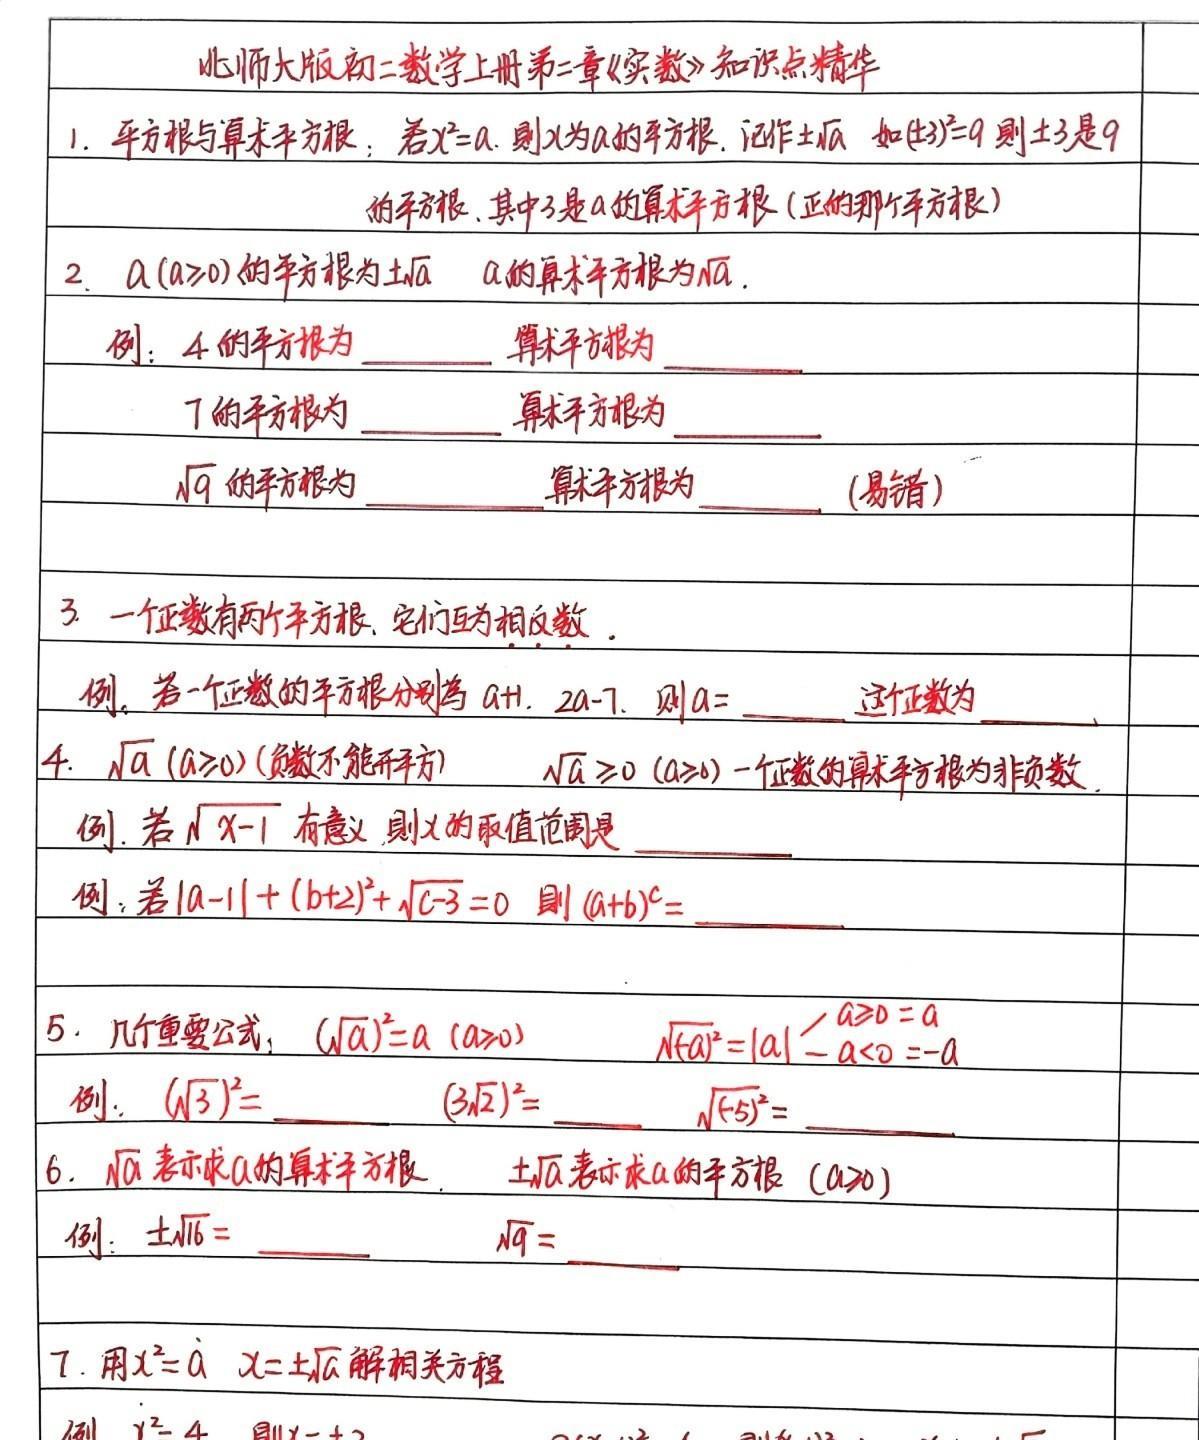 北师大版初二数学上册第二章《实数》知识点精华
1. 平方根与算术平方根：若x²=a. 则x为a的平方根. 记作±√a 如(±3)²=9 则±3是9
的平方根、其中3是a的算术平方根（正的那个平方根）
2. a(a≥0)的平方根为±√a a的算术平方根为√a.
例：4的平方根为 ______ 算术平方根为 ______
7的平方根为 ______ 算术平方根为 ______
√9 的平方根为 ______ 算术平方根为 ______ (易错)
3. 一个正数有两个平方根、它们互为相反数.
例. 若一个正数的平方根分别为 a+1. 2a-7. 则a= ______ 这个正数为 ______
4. √a (a≥0)(负数不能开平方) √a≥0 (a≥0) 一个正数的算术平方根为非负数.
例. 若√(x-1) 有意义,则x的取值范围是 ______
例：若|a-1|+(b+2)²+√(c-3)=0 则(a+b)^c= ______
5. 几个重要公式： (√a)²=a (a≥0) √(-a)²=|a| a≥0 =a
a<0 =-a
例： (√3)²= ______ (3√2)²= ______ √(-5)²= ______
6. √a 表示求a的算术平方根. ±√a表示求a的平方根 (a≥0)
例： ±√16= ______ √9= ______
7. 用x²=a x=±√a 解相关方程
例 x²=4 则x=±2